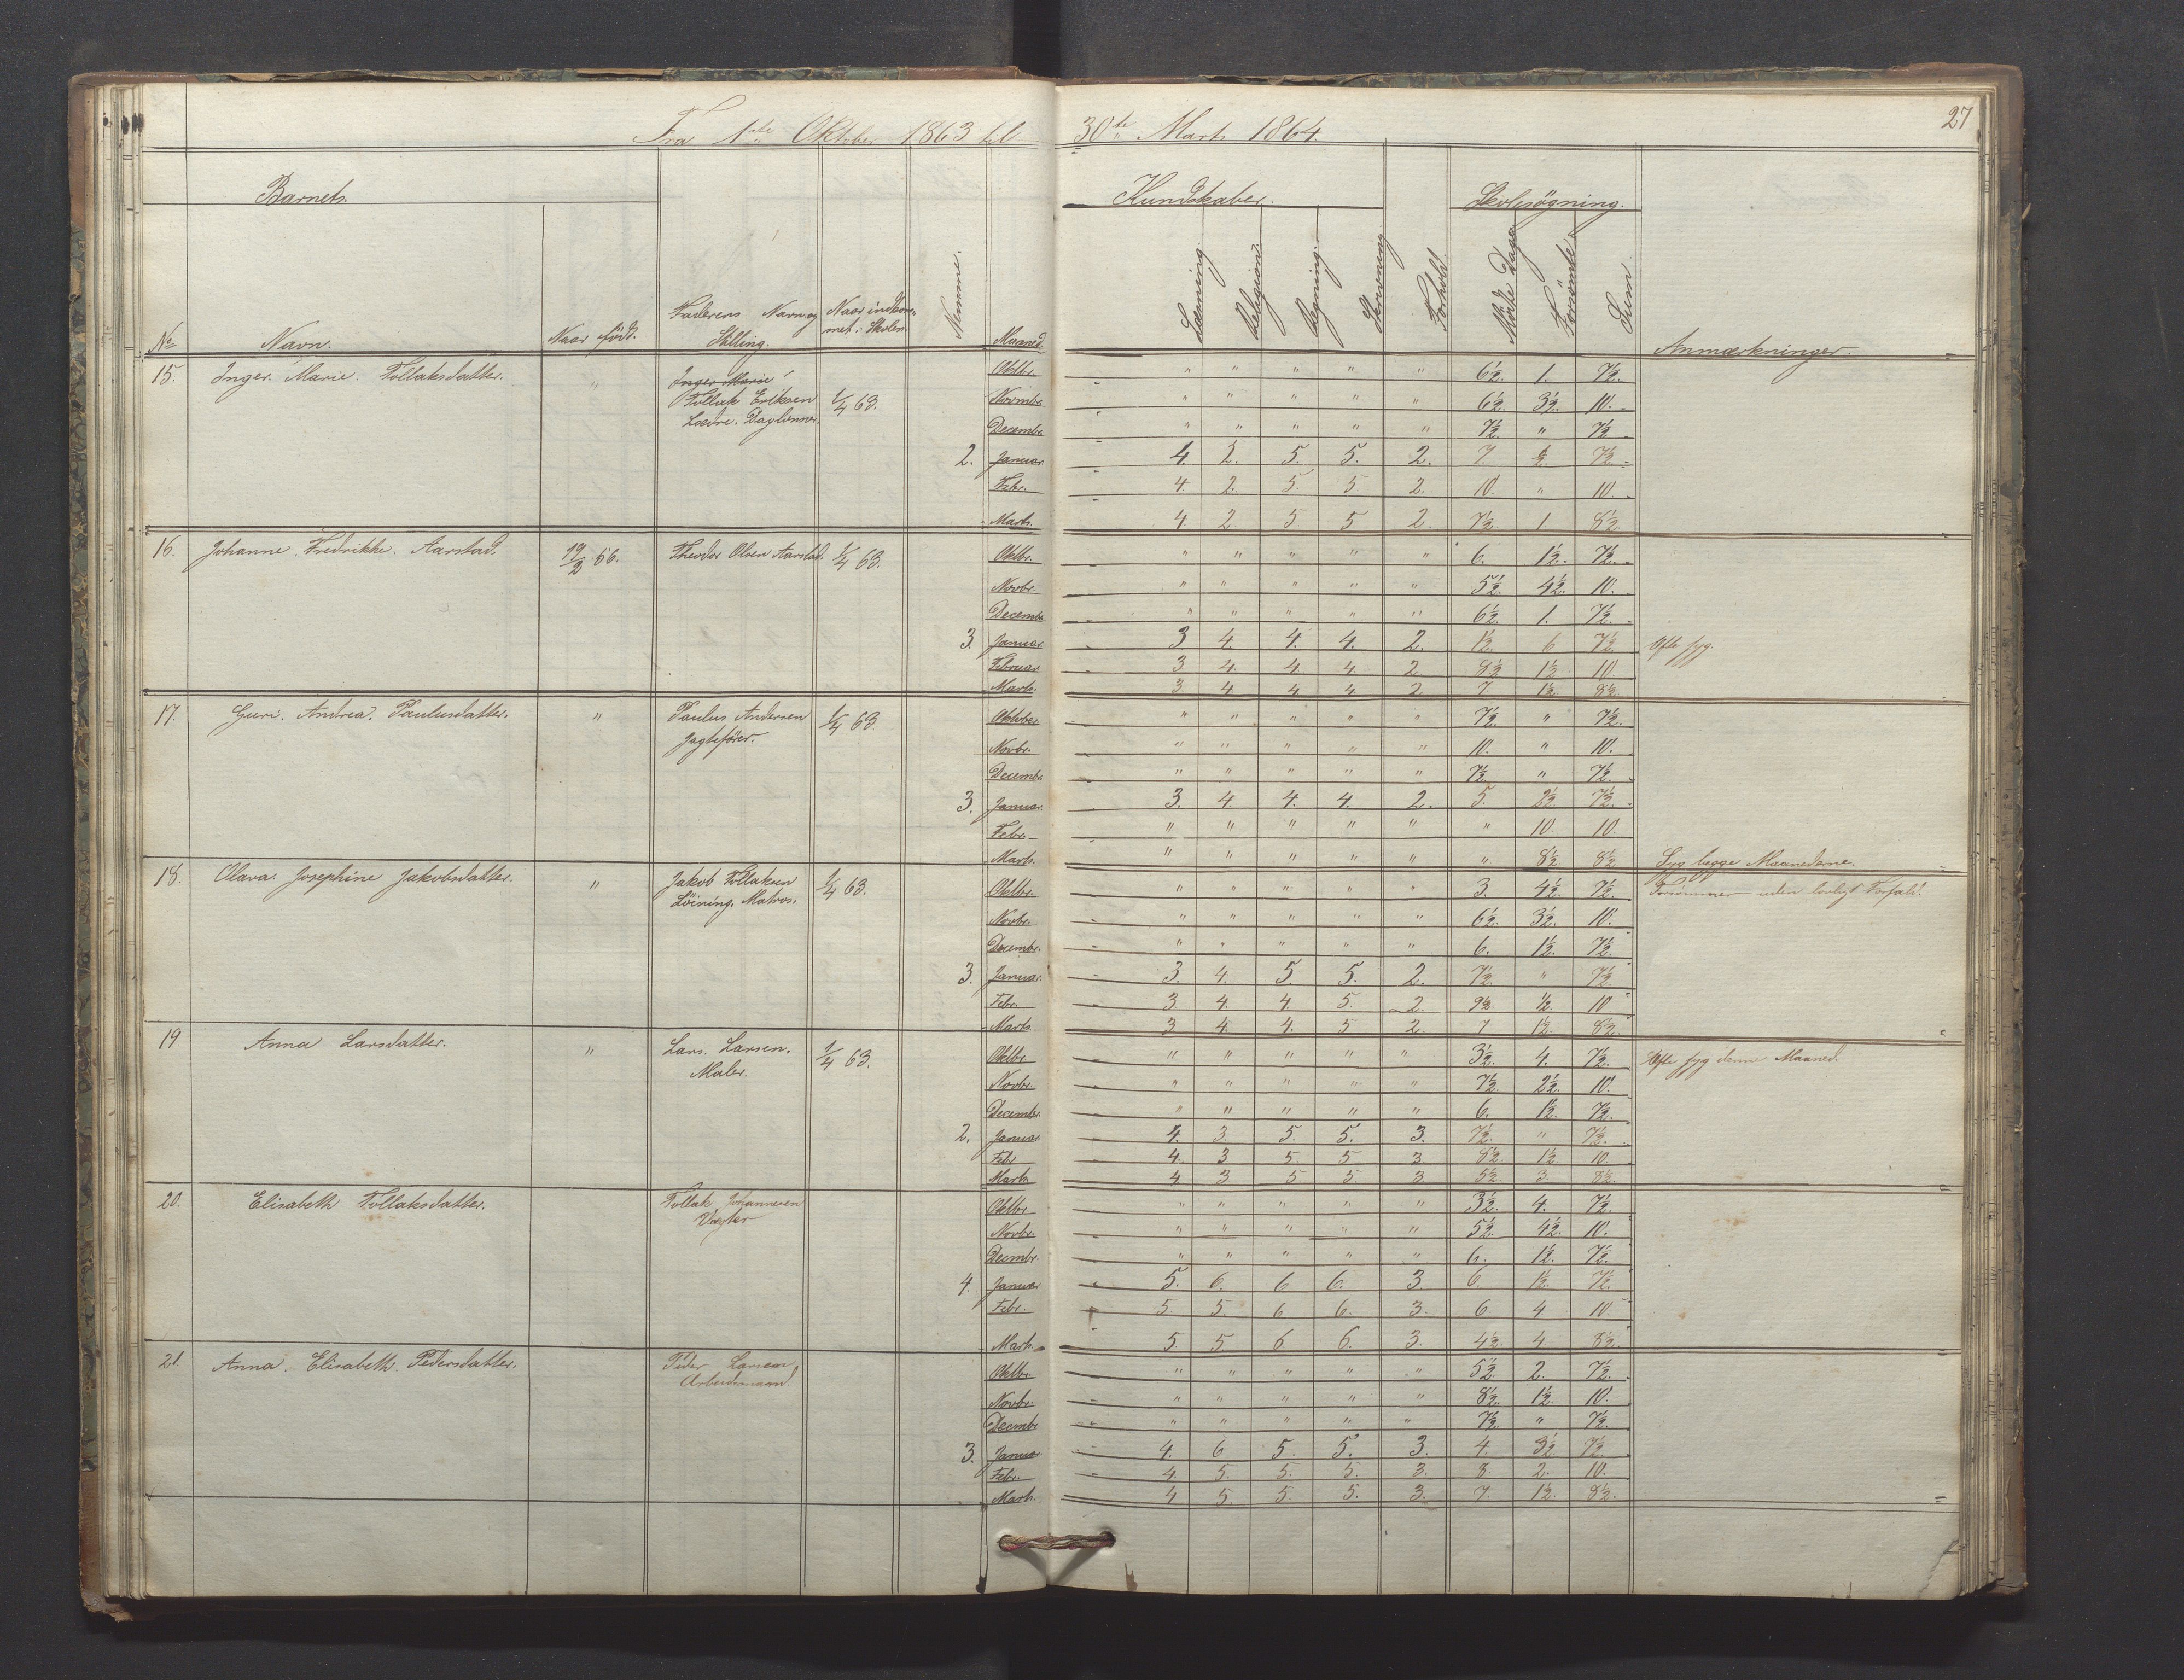 27
Fra 1ste Oktober 1863 til 30te Marts 1864.
Barnets. Kundskaber. Skolesøgning.
No Navn. Naar født. Faderens Navn og Stilling. Naar indkommet i Skolen. Nemme. Maaned. Læsning. Religion. Regning. Skrivning Forhold Mødte Dage Forsømte Sum. Anmærkninger.
15. Inger. Marie. Tollaksdatter. " Inger Marie
Tollak Eriksen 1/4 63.
Daglønner.
Oktbr. " " " " " 6½. 1. 7½.
Novmbr. " " " " " 6½. 3½. 10.
Decembr. " " " " " 7½. " 7½
2. Januar. 4. 2. 5. 5. 2. 7. ½. 7½.
Febr. 4. 2. 5. 5. 2. 10. " 10.
Marts. 4 2. 5 5 2. 7½. 1. 8½
16. Johanne. Fredrikke. Aarstad. 19/2 56. Theodor Olsen Aarstad. 1/4 63.
Oktbr. " " " " " 6. 1½. 7½.
Novbr. " " " " " 5½. 4½. 10.
Decembr " " " " " 6½. 1. 7½.
3. Januar 3 4. 4. 4. 2. 1½. 6 7½. Ofte syg.
Februar 3 4. 4 4 2 8½ 1½ 10.
Marts. 3. 4 4 4 2. 7. 1½. 8½.
17. Guri. Andrea. Paulusdatter. " Paulus Andersen 1/4 63.
Jagtefører.
Oktober " " " " " 7½. " 7½.
Novbr. " " " " " 10. " 10.
Decembr. " " " " " 7½. " 7½.
3. Januar. 3. 4. 4. 4. 2. 5. 2½. 7½.
Febr. " " " " " " 10. 10.
Marts. " " " " " " 8½. 8½. Syg begge Maanederne.
18. Olava. Josephine Jakobsdatter. " Jakob Tollaksen 1/4 63.
Løining. Matros.
Oktbr. " " " " " 3 4½. 7½. Forsømmer uden lovligt Forfald.
Novbr. " " " " " 6½. 3½. 10.
Decembr. " " " " " 6. 1½. 7½.
3. Januar. 3. 4. 5. 5. 2. 7½. " 7½
Febr. 3 4. 4. 5. 2. 9½. ½. 10
Marts. 3 4. 4. 5 2. 7 1½. 8½.
19 Anna Larsdatter. " Lars. Larsen. 1/4 63.
Maler.
Oktbr. " " " " " 3½. 4. 7½. Ofte syg denne Maaned.
Novbr " " " " " 7½. 2½. 10.
Decembr. " " " " " 6. 1½. 7½.
2. Januar. 4. 3. 5. 5. 3. 7½. " 7½.
Febr 4. 3. 5. 5 3 8½. 1½. 10
Marts 4 3 5 5. 3. 5½. 3. 8½.
20. Elisabeth Tollaksdatter. Tollak Johannesen
Vægter
Oktbr. " " " " " 3½. 4. 7½.
Novbr. " " " " " 5½. 4½. 10.
Decmbr. " " " " " 6. 1½. 7½.
4. Januar 5. 6. 6 6. 3. 6. 1½. 7½.
Febr. 5. 5. 6 6. 3. 6 4. 10.
Marts 5. 5 6. 6. 3. 4½. 4. 8½.
21. Anna. Elisabeth. Pedersdatter. Peder Larsen
Arbeidsmand
Oktbr. " " " " " 5½. 2. 7½.
Novbr. " " " " " 8½. 1½. 10.
Decembr " " " " " 7½. " 7½.
3. Januar 4. 6 5. 5. 3. 4. 3½ 7½.
Febr. 4. 5. 5. 5. 3. 8 2. 10.
Marts. 4 5. 5. 5. 3. 7. 1½. 8½.